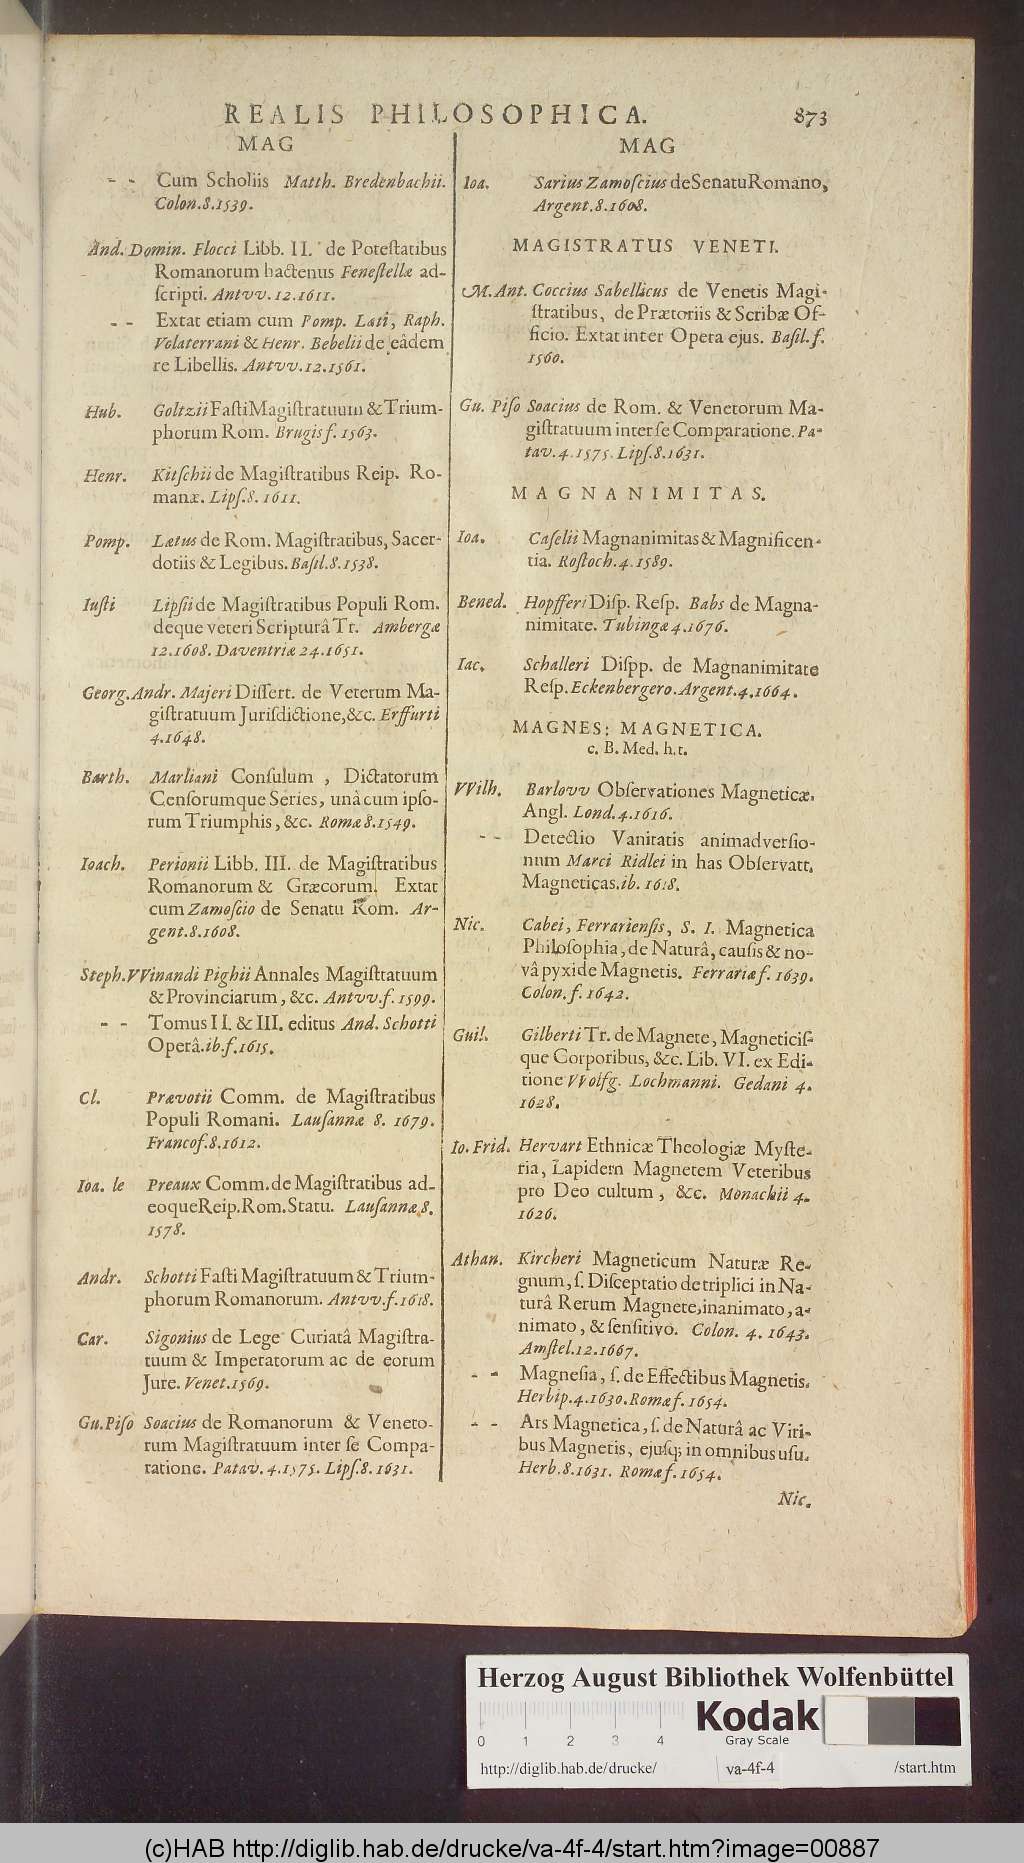 REALIS PHILOSOPHICA. 873
MAG
- - Cum Scholiis Matth. Bredenbachii.
Colon. 8. 1539.
And. Domin. Flocci Libb. II. de Potestatibus
Romanorum hactenus Fenestellæ ad-
scripti. Antvv. 12. 1611.
- - Extat etiam cum Pomp. Læti, Raph.
Volaterrani & Henr. Bebelii de eâdem
re Libellis. Antvv. 12. 1561.
Hub. Goltzii Fasti Magistratuum & Trium-
phorum Rom. Brugis f. 1563.
Henr. Kitschii de Magistratibus Reip. Ro-
manæ. Lips. 8. 1611.
Pomp. Lætus de Rom. Magistratibus, Sacer-
dotiis & Legibus. Basil. 8. 1538.
Iusti Lipsii de Magistratibus Populi Rom.
deque veteri Scripturâ Tr. Ambergæ
12. 1608. Daventriæ 24. 1651.
Georg. Andr. Majeri Dissert. de Veterum Ma-
gistratuum Jurisdictione, &c. Erffurti
4. 1648.
Barth. Marliani Consulum, Dictatorum
Censorumque Series, unà cum ipso-
rum Triumphis, &c. Romæ 8. 1549.
Ioach. Perionii Libb. III. de Magistratibus
Romanorum & Græcorum. Extat
cum Zamoscio de Senatu Rom. Ar-
gent. 8. 1608.
Steph. VVinandi Pighii Annales Magistratuum
& Provinciarum, &c. Antvv. f. 1599.
- - Tomus II. & III. editus And. Schotti
Operâ. ib. f. 1615.
Cl. Prævotii Comm. de Magistratibus
Populi Romani. Lausannæ 8. 1679.
Francof. 8. 1612.
Ioa. le Preaux Comm. de Magistratibus ad-
eoque Reip. Rom. Statu. Lausannæ 8.
1578.
Andr. Schotti Fasti Magistratuum & Trium-
phorum Romanorum. Antvv. f. 1618.
Car. Sigonius de Lege Curiatâ Magistra-
tuum & Imperatorum ac de eorum
Jure. Venet. 1569.
Gu. Piso Soacius de Romanorum & Veneto-
rum Magistratuum inter se Compa-
ratione. Patav. 4. 1575. Lips. 8. 1631.
MAG
Ioa. Sarius Zamoscius de Senatu Romano,
Argent. 8. 1608.
MAGISTRATUS VENETI.
M. Ant. Coccius Sabellicus de Venetis Magi-
stratibus, de Prætoriis & Scribæ Of-
ficio. Extat inter Opera ejus. Basil. f.
1560.
Gu. Piso Soacius de Rom. & Venetorum Ma-
gistratuum inter se Comparatione. Pa-
tav. 4. 1575. Lips. 8. 1631.
MAGNANIMITAS.
Ioa. Caselii Magnanimitas & Magnificen-
tia. Rostoch. 4. 1589.
Bened. Hopfferi Disp. Resp. Babs de Magna-
nimitate. Tubingæ 4. 1676.
Iac. Schalleri Dispp. de Magnanimitate
Resp. Eckenbergero. Argent. 4. 1664.
MAGNES: MAGNETICA.
c. B. Med. h. t.
VVilh. Barlovv Observationes Magneticæ.
Angl. Lond. 4. 1616.
- - Detectio Vanitatis animadversio-
num Marci Ridlei in has Observatt.
Magneticas. ib. 1618.
Nic. Cabei, Ferrariensis, S. I. Magnetica
Philosophia, de Naturâ, causis & no-
vâ pyxide Magnetis. Ferrariæ f. 1639.
Colon. f. 1642.
Guil. Gilberti Tr. de Magnete, Magneticis-
que Corporibus, &c. Lib. VI. ex Edi-
tione VVolfg. Lochmanni. Gedani 4.
1628.
Io. Frid. Hervart Ethnicæ Theologiæ Myste-
ria, Lapidem Magnetem Veteribus
pro Deo cultum, &c. Monachii 4.
1626.
Athan. Kircheri Magneticum Naturæ Re-
gnum, s. Disceptatio de triplici in Na-
turâ Rerum Magnete, inanimato, a-
nimato, & sensitivo. Colon. 4. 1643.
Amstel. 12. 1667.
- - Magnesia, s. de Effectibus Magnetis.
Herbip. 4. 1630. Romæ f. 1654.
- - Ars Magnetica, s. de Naturâ ac Viri-
bus Magnetis, ejusq; in omnibus usu.
Herb. 8. 1631. Romæ f. 1654.
Nic.
Herzog August Bibliothek Wolfenbüttel
0 1 2 3 4
Kodak
Gray Scale
http://diglib.hab.de/drucke/ va-4f-4 /start.htm
(c)HAB http://diglib.hab.de/drucke/va-4f-4/start.htm?image=00887